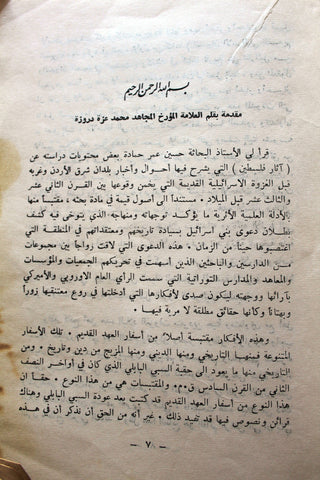 بسم الله الرحمن الرحيم
مقدمة بقلم العلامة المؤرخ المجاهد محمد عزة دروزة
قرأ لي الأستاذ البحاثة حسين عمر حمادة بعض محتويات دراسته عن
( آثار فلسطين ) التي يشرح فيها أحوال وأخبار بلدان شرق الأردن وغربه
قبل الغزوة الاسرائيلية القديمة التي يخمن وقوعها بين القرن الثاني عشر
والثالث عشر قبل الميلاد . مستنداً الى أصول قيمة في مادة بحثه ، مقتبساً منها
الأدلة العلمية الأثرية ما يؤكد توجهاته ومنهاجه، الذي يتوخى فيه كشف
بطلان دعوى بني اسرائيل بسيادة تاريخهم ومعتقداتهم في المنطقة التي
اغتصبوها حيناً من الزمان . هذه الدعوى التي لاقت رواجاً بين مجموعات
من الدارسين والباحثين الذين أسهمت في تحريكهم الجمعيات والمؤسسات
والمعاهد والمدارس التوراتية التي سممت الرأي العام الاوروبي والأميركي
بآرائها ووجهته ليكون صدى لأفكارها التي أدخلتها في روع معتنقيها زوراً
وبهتاناً وكأنها حقائق مطلقة لا مرية فيها .
وهذه الأفكار مقتبسة أصلاً من أسفار العهد القديم . تلك الأسفار
المتنوعة فمنهـا التاريخي ومنها الديني ومنها المزيج من دين وتاريخ . ومن
التاريخي منها ما يعود الى حقبة السبي البابلي الذي كان في أواخـر النصف
الثاني من القرن السادس ق.م. والمقتبسات هي من هذا النوع . حقـاً ان
هذا النوع من أسفار العهد القديم قد كتبت بعد عودة السبي البابلي وهناك
قرائن ونصوص فيها قد تفيد ذلك . غير أنه من الحق أن نذكر أن في هـذه
— ٧ —